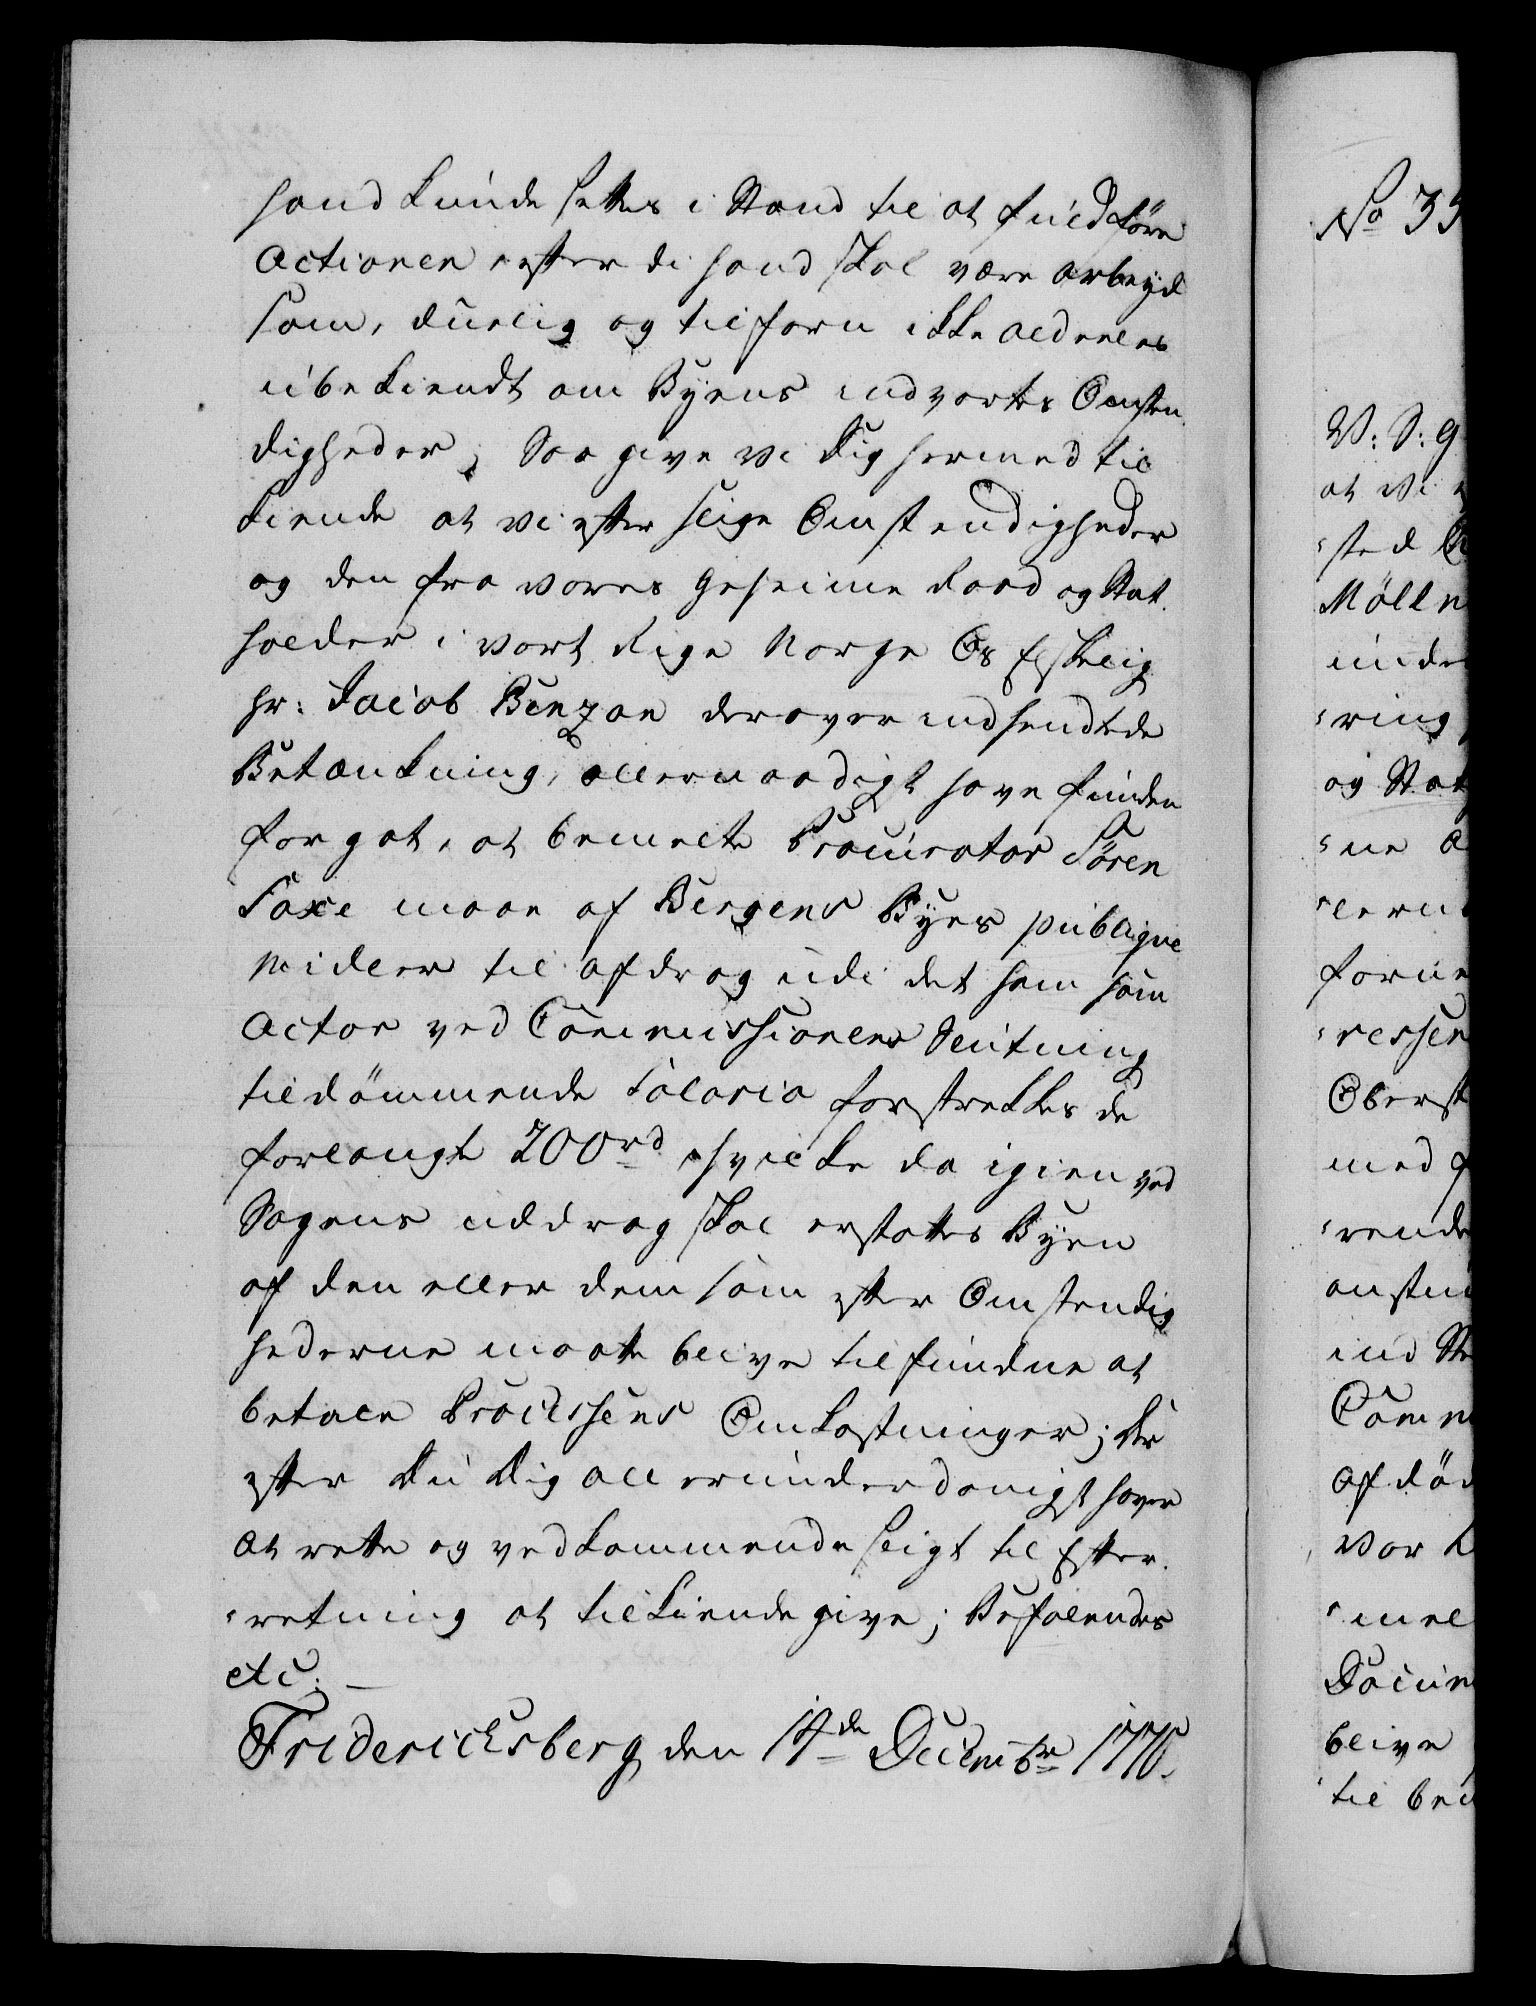 hand kunde settes i Stand til at fuldføre
Actionen efterdi hand skal være arbeyd
som, duelig og tilforn ikke aldeeles
ubekiendt om Byens indvortes Omsten-
digheder; Saa give Vi Dig hermed til
kiende at Vi efter slige Omstendigheder
og den fra Vores Geheime Raad og Stat-
holder i Vort Rige Norge Os Elskelig
Hr: Jacob Benzon derover indsendtede
Betænkning, allernaadigst have funden
for got, at bemelte Procurator Sören
Saxe maae af Bergens Byes publique
Midler til Afdrag udi det ham som
Actor ved Commissionens Slutning
tildömmende Salario forstrekkes de
forlangte 200rd, hvilke da igien ved
Sagens Uddrag skal erstattes Byen
af den eller dem som efter Omstendig
hederne maatte blive tilfundne at
betale Processens Omkostninger; Der
efter Du Dig allerunderdanigst haver
at rette og vedkommende sligt til Efter-
"retning at tilkiende give; Befalendes
etc: —
Fridericksberg den 14de Decembr 1770.
No 35
V: S: G
at Vi
"sted
Mölln
unde
"ring
og Stat
"ne A
"lern
forne
"resser
Oberst
med
"rende
anste
ind St
Comm
Afdöd
Vor
"mel
Docum
blive
til be